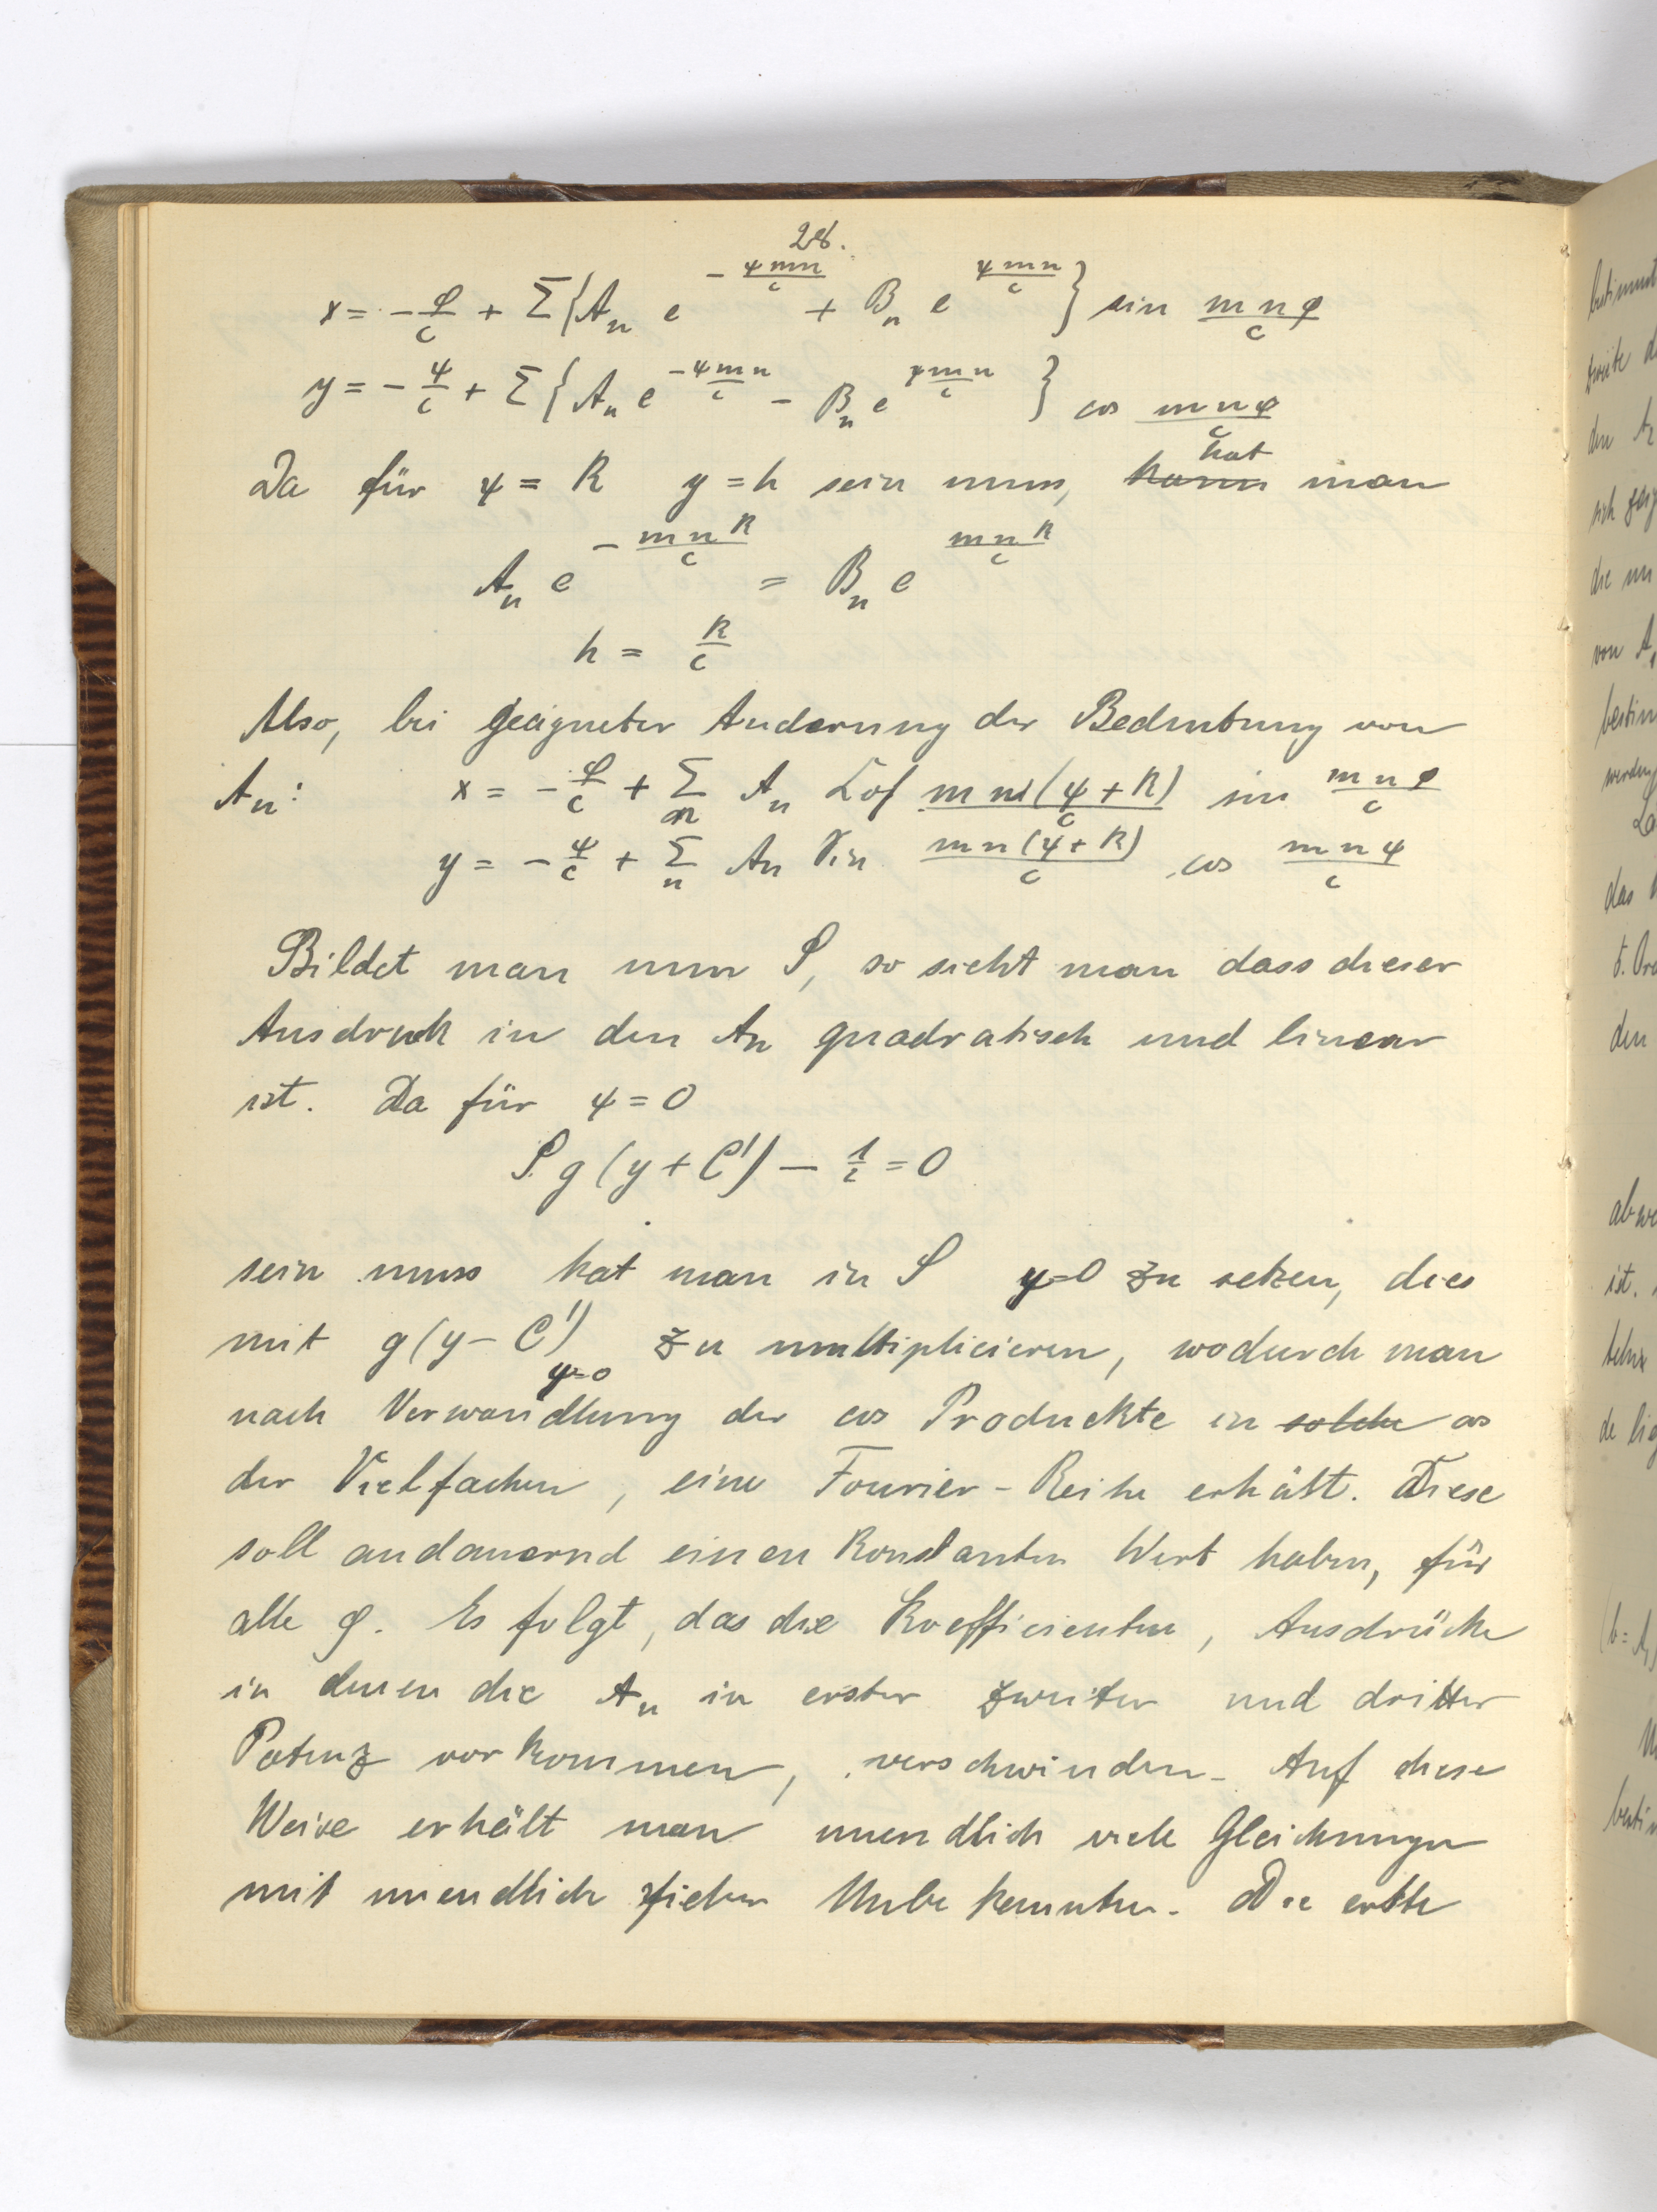 28.
x = - φ/c + Σ{A_n e^{-ψmn/c} + B_n e^{ψmn/c}} sin mnφ/c
y = - ψ/c + Σ{A_n e^{-ψmn/c} - B_n e^{ψmn/c}} cos mnφ/c
Da für ψ = k y = h sein muss, ~~kann~~ hat man
A_n e^{-mnk/c} = B_n e^{mnk/c}
h = k/c
Also, bei geeigneter Änderung der Bedeutung von
A_n: x = - φ/c + Σ_n A_n Cof mn(ψ+k)/c sin mnφ/c
y = - ψ/c + Σ_n A_n Sin mn(ψ+k)/c cos mnφ/c
Bildet man nun S, so sieht man dass dieser
Ausdruck in den An quadratisch und linear
ist. Da für ψ = 0
S g (y + C') - 1/2 = 0
sein muss hat man in S ψ=0 zu setzen, dies
mit g(y - C')_{ψ=0} zu multiplicieren, wodurch man
nach Verwandlung der cos Produckte in ~~solche~~ cos
der Vielfachen, eine Fourier-Reihe erhält. Diese
soll andauernd einen Konstanten Wert haben, für
alle φ. Es folgt, das die Koefficienten, Ausdrücke
in denen die A_n in erster zweiter und dritter
Potenz vorkommen, verschwinden. Auf diese
Weise erhält man unendlich viele Gleichungen
mit unendlich vielen Unbekannten. Die erste